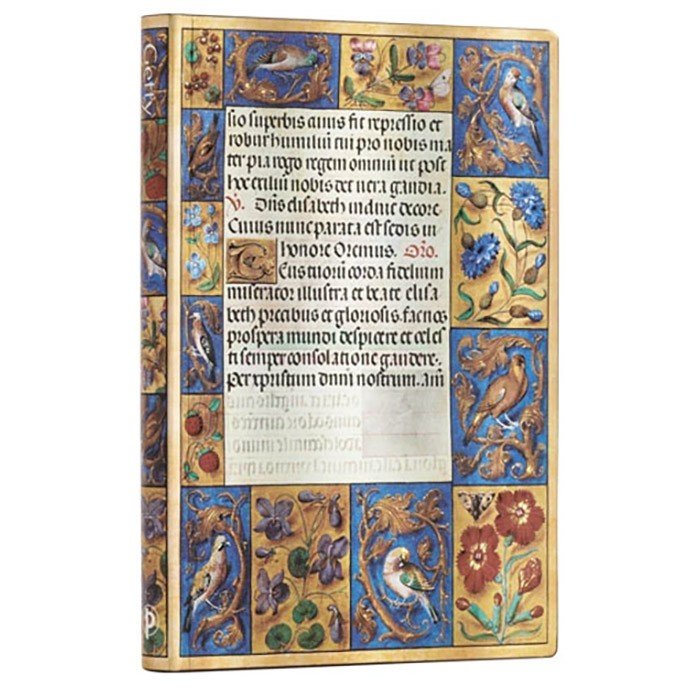 Getty
sio superbis cuius fit repressio et
robur humiliū cui pro nobis ma
ter pia rogo regem omniū ut post
hoc exiliū nobis det vera gaudia.
℣. Dn̄s elisabeth induit decore
Cuius nunc parata est sedis in
honore Oremus. Oro.
Deus tuorū corda fidelium
miserator illustra et beate elisa
beth precibus et gloriosis fac nos
prospera mundi despicere et celes
ti semper consolatione gaudere.
Per xpristum dnm̄ nostrum. am̄